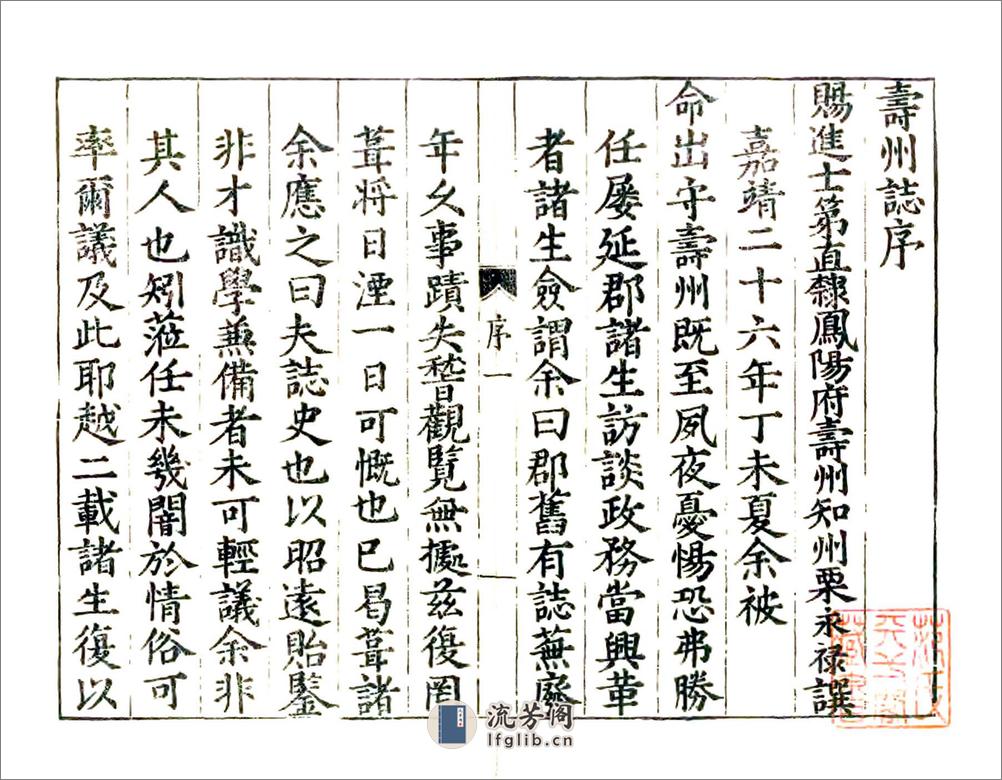 壽州誌序
賜進士第直隸鳳陽府壽州知州栗永祿譔
嘉靖二十六年丁未夏余被
命出守壽州既至夙夜憂惕恐弗勝
任屢延郡諸生訪談政務當興革
者諸生僉謂余曰郡舊有誌蕪廢
序一
年久事蹟失稽觀覽無據茲復罔
葺將日湮一日可慨也巳曷葺諸
余應之曰夫誌史也以昭遠貽鑒
非才識學兼備者未可輕議余非
其人也矧蒞任未幾闇於情俗可
率爾議及此耶越二載諸生復以
流芳阁
lfglib.cn